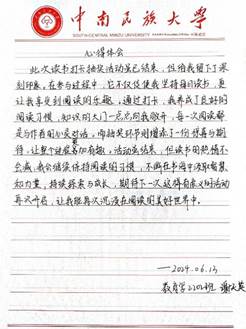 中南民族大学
SOUTH-CENTRAL MINZU UNIVERSITY
心得体会
此次读书打卡抽奖活动虽已结束，但给我留下了深
刻印象。在参与过程中，它不仅促使我坚持每日读书，更
让我享受到阅读的乐趣。通过打卡，我养成了良好的
阅读习惯，知识的大门一点点向我敞开。每一次阅读都
是与作者的心灵对话，而抽奖环节则增添了一份惊喜与期
待，让整个过程更加有趣。活动虽结束，但读书的热情不
会减，我会继续保持阅读的习惯，不断在书海中汲取智慧
和力量，持续探索与成长，期待下一次这样有意义的活动
再次开启，让我能再次沉浸在阅读的美好世界中。
——2024.06.13
教育学2202班 谢